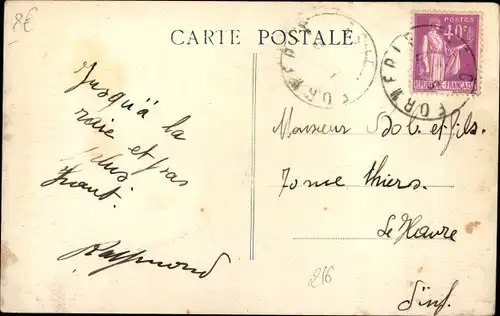 8€
CARTE POSTALE
POSTES
40c
REPUBLIQUE FRANCAISE
Jusqu'à la
raie et pas
plus
haut.
Raymond
Monsieur et fils.
70 rue Thiers.
Le Havre
S inf.
216